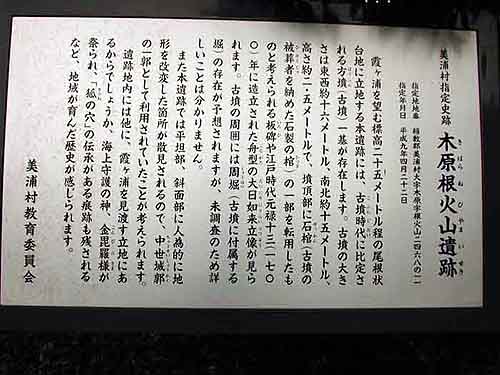 美浦村指定史跡 木原根火山遺跡
きはらねびやまいせき
指定地地番 稲敷郡美浦村大字木原字根火山二四六八の二
指定年月日 平成九年四月二十二日
霞ヶ浦を望む標高二十五メートル程の尾根状
台地に立地する本遺跡には、古墳時代に比定さ
れる方墳(古墳)一基が存在します。古墳の大き
さは東西約十六メートル、南北約十五メートル、
高さ約二・五メートルで、墳頂部に石棺(古墳の
被葬者を納めた石製の棺)の一部を転用したも
のと考えられる板碑や江戸時代(元禄十三・一七〇
〇)年に造立された舟型の大日如来立像が見ら
れます。古墳の周囲には周堀(古墳に付属する
堀)の存在が予想されますが、未調査のため詳
しいことは分かりません。
また本遺跡では平坦部、斜面部に人為的に地
形を改変した箇所が散見されるので、中世城郭
の一郭として利用されていたことが考えられます。
遺跡地内には他に、霞ヶ浦を見渡す立地にあ
るからでしょうか、海上守護の神、金毘羅様が
祭られ、「狐の穴」の伝承がある痕跡も残される
など、地域が育んだ歴史が感じられます。
美浦村教育委員会